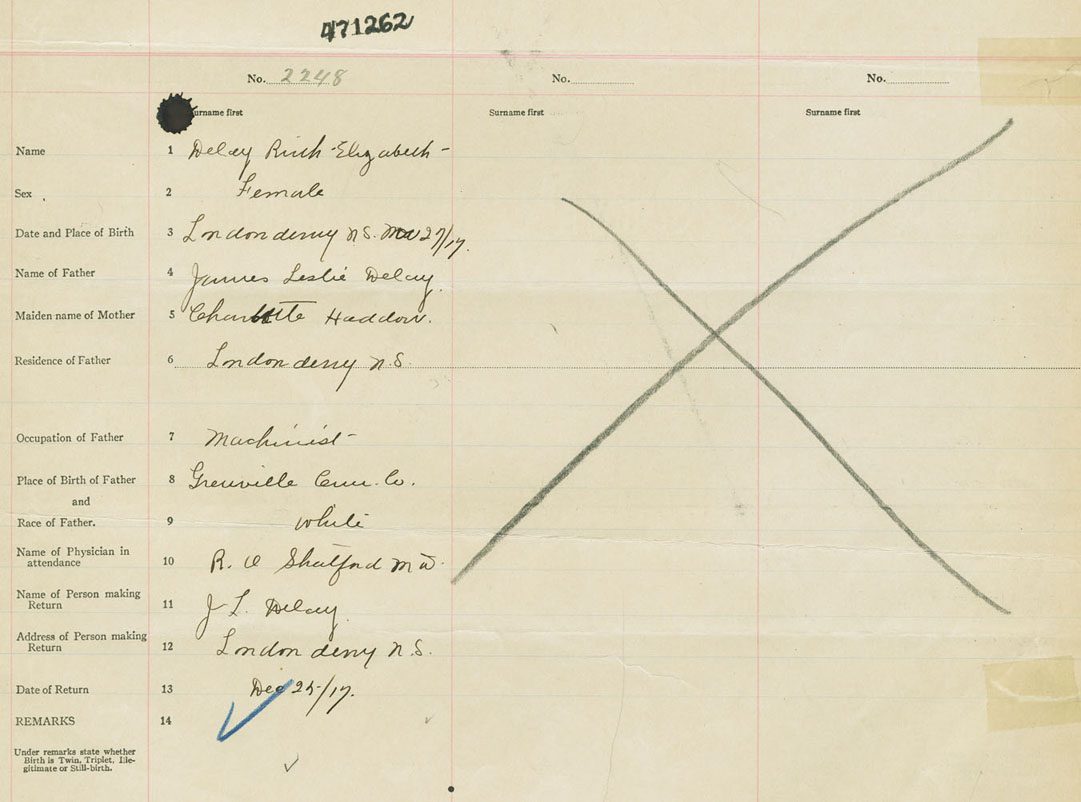 471262
No. 2248 No. No.
urname first Surname first Surname first
Name 1 Delay Ruth-Elizabeth-
Sex 2 Female
Date and Place of Birth 3 Londonderry N.S. 27/17.
Name of Father 4 James Leslie Delay.
Maiden name of Mother 5 Charlotte Haddow.
Residence of Father 6 Londonderry N.S.
Occupation of Father 7 Machinist-
Place of Birth of Father 8 Grenville Cum. Co.
and
Race of Father. 9 White
Name of Physician in
attendance 10 R. O Shatford M D.
Name of Person making
Return 11 J- L. Delay.
Address of Person making
Return 12 Londonderry N.S.
Date of Return 13 Dec 25/17.
REMARKS 14
Under remarks state whether
Birth is Twin, Triplet, Ille-
gitimate or Still-birth.